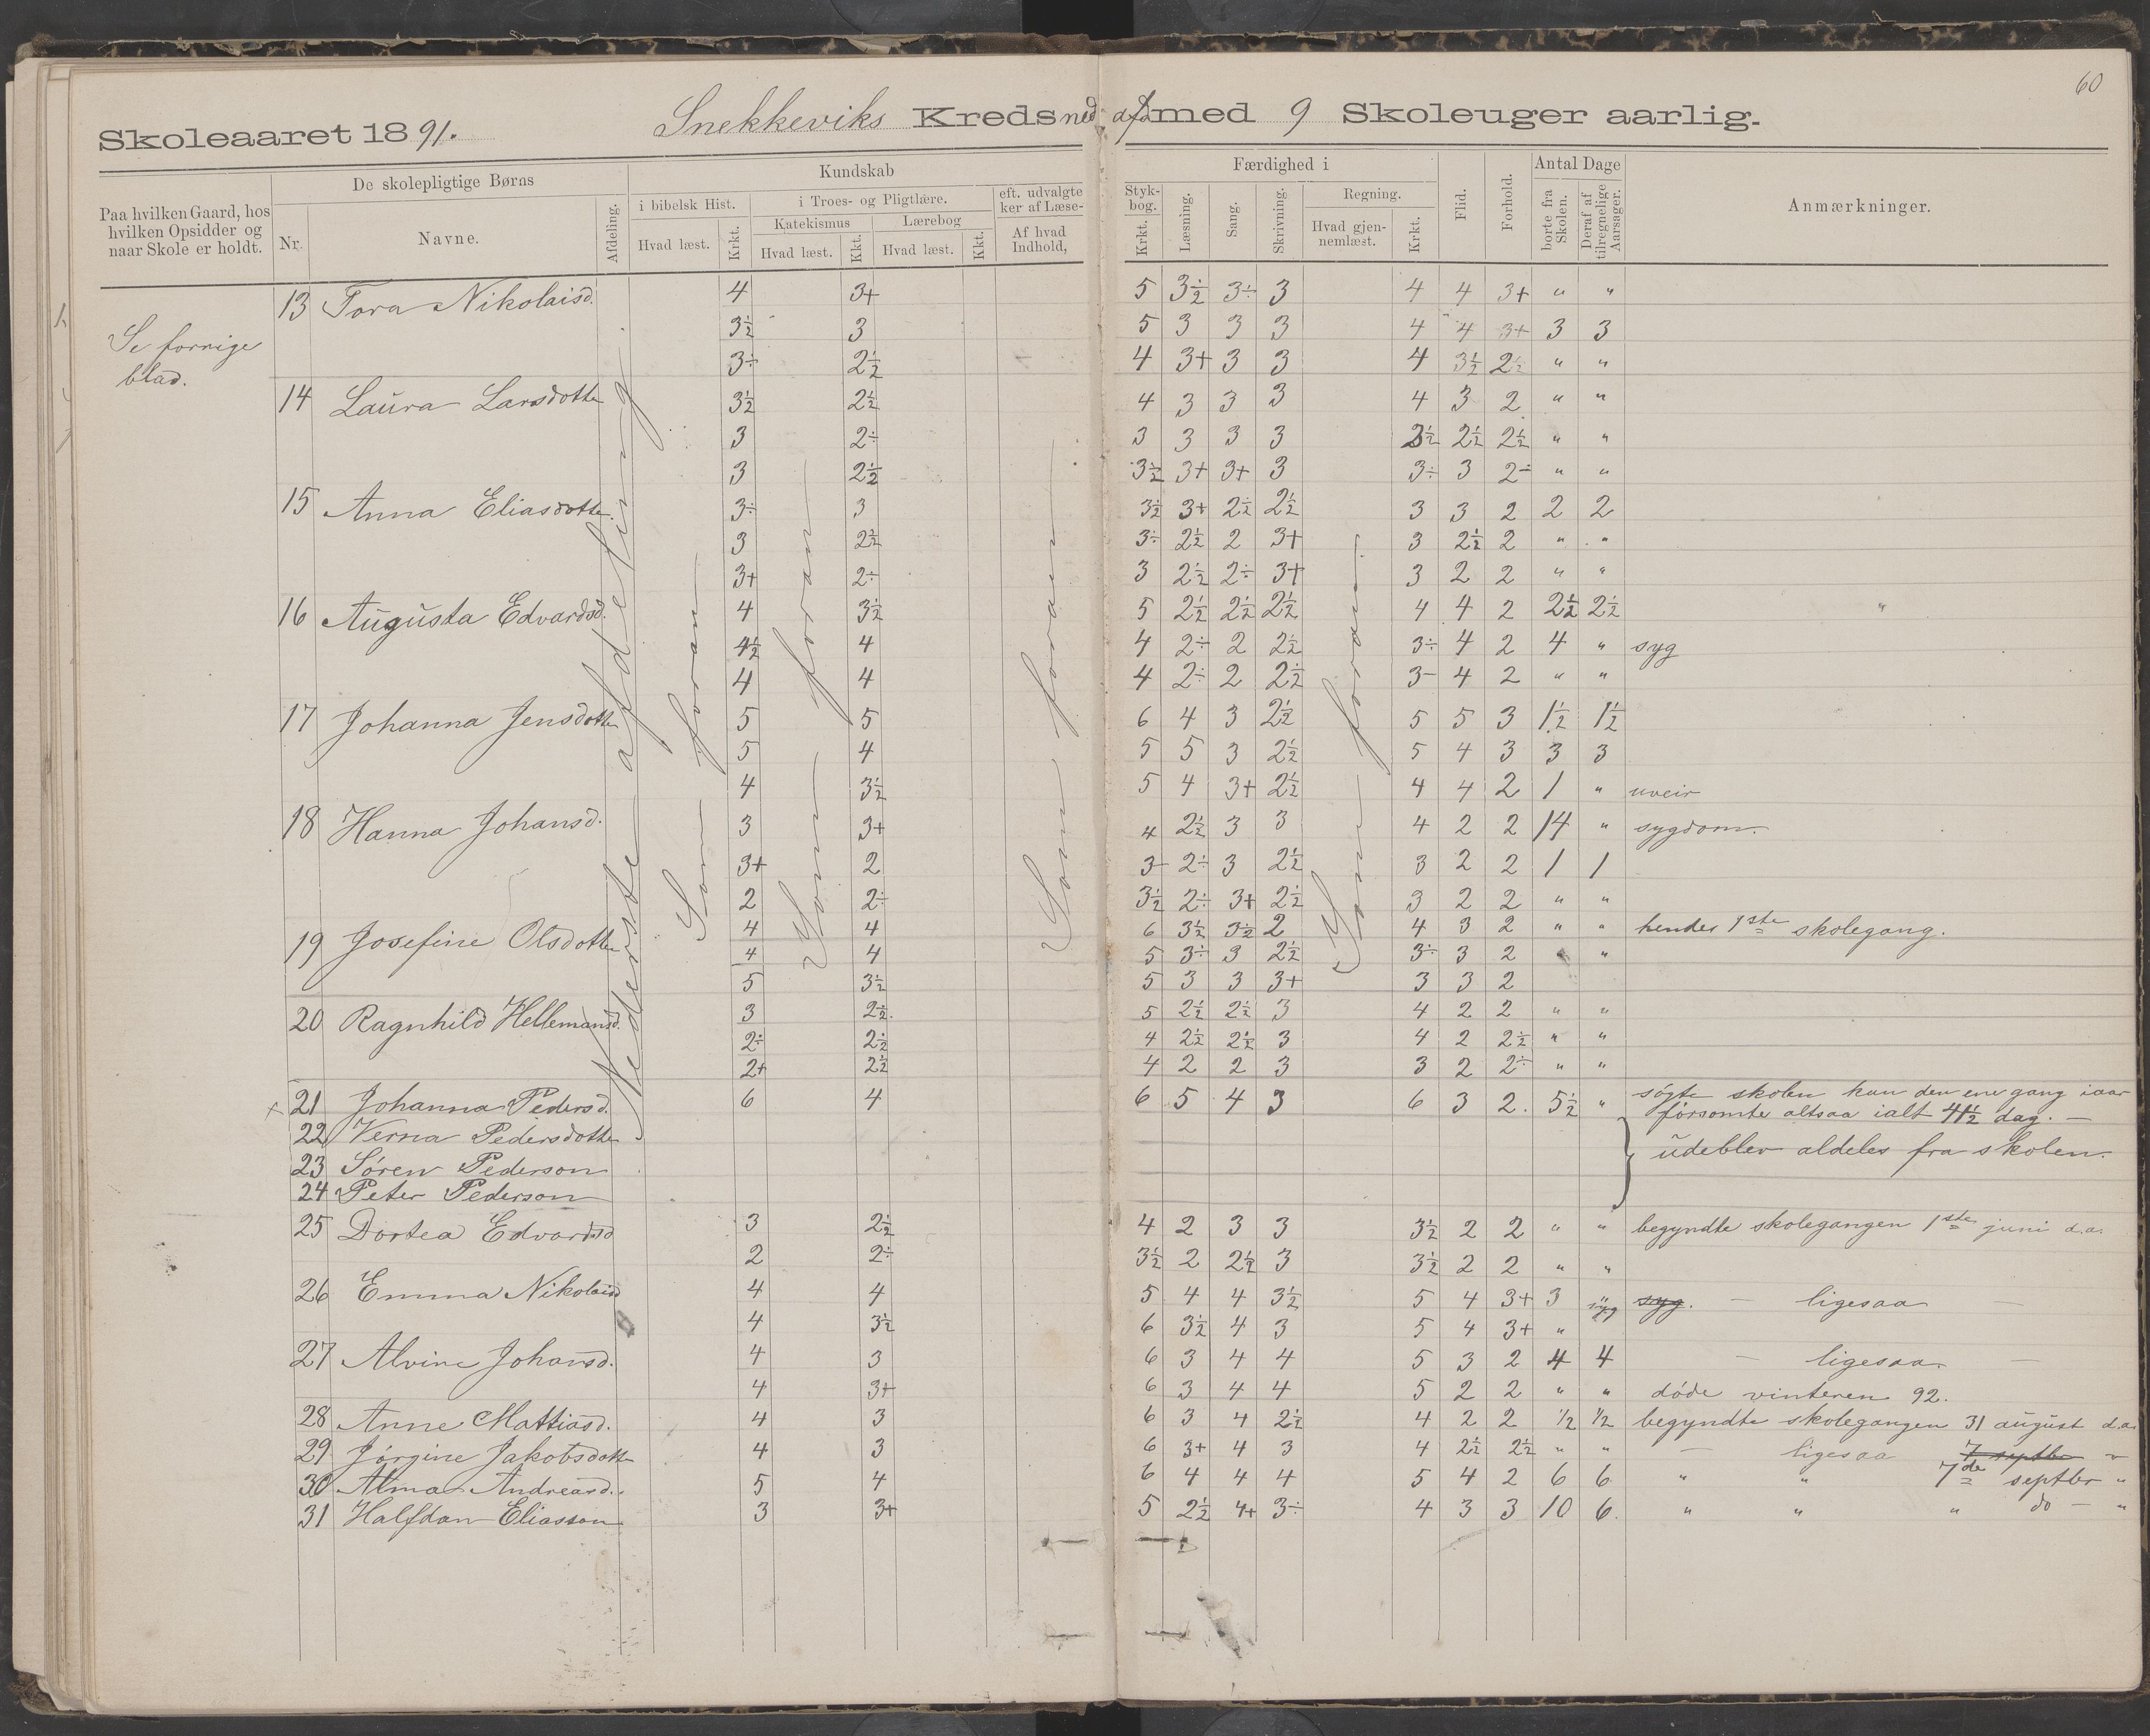 60
Skoleaaret 1891. Snekkeviks Kreds ned. afd med 9 Skoleuger aarlig.
Paa hvilken Gaard, hos hvilken Opsidder og naar Skole er holdt.
De skolepligtige Børns
Nr. Navne. Afdeling.
Kundskab
i bibelsk Hist. i Troes- og Pligtlære. eft. udvalgte
ker af Læse-
Katekismus Lærebog
Hvad læst. Krkt. Hvad læst. Kkt. Hvad læst. Kkt. Af hvad Indhold,
Færdighed i
Styk-
bog. Krkt. Læsning. Sang. Skrivning. Regning. Hvad gjen-
nemlæst. Krkt. Flid. Forhold. Antal Dage borte fra Skolen. Deraf af tilregnelige Aarsager. Anmærkninger.
Se forrige
blad.
Nederste afdeling.
Som foran
Som foran
Som foran
Som foran
13 Tora Nikolaisd. 4 3+ 5 3½ 3÷ 3 4 4 3+ " "
3½ 3 5 3 3 3 4 4 3+ 3 3
3÷ 2½ 4 3+ 3 3 4 3½ 2½ " "
14 Laura Larsdotte 3½ 2½ 4 3 3 3 4 3 2 " "
3 2÷ 3 3 3 3 3½ 2½ 2½ " "
3 2½ 3½ 3+ 3+ 3 3÷ 3 2÷ " "
15 Anna Eliasdotte. 3÷ 3 3½ 3+ 2½ 2½ 3 3 2 2 2
3 2½ 3÷ 2½ 2 3+ 3 2½ 2 " "
3+ 2÷ 3 2½ 2÷ 3+ 3 2 2 " "
16 Augusta Edvardsd. 4 3½ 5 2½ 2½ 2½ 4 4 2 2½ 2½ "
4½ 4 4 2÷ 2 2½ 3÷ 4 2 4 " syg
4 4 4 2÷ 2 2½ 3- 4 2 " "
17 Johanna Jensdotte 5 5 6 4 3 2½ 5 5 3 1½ 1½
5 4 5 5 3 2½ 5 4 3 3 3
4 3½ 5 4 3+ 2½ 4 4 2 1 " uveir
18 Hanna Johansd. 3 3+ 4 2½ 3 3 4 2 2 14 " sygdom.
3+ 2 3- 2÷ 3 2½ 3 2 2 1 1
2 2÷ 3½ 2÷ 3+ 2½ 3 2 2 " "
19 Josefine Olsdotte 4 4 6 3½ 3½ 2 4 3 2 " " hendes 1ste skolegang.
4 4 5 3÷ 3 2½ 3÷ 3 2 " "
5 3½ 5 3 3 3+ 3 3 2
20 Ragnhild Hellemansd. 3 2½. 5 2½ 2½ 3 4 2 2 " "
2÷ 2½ 4 2½ 2½ 3 4 2 2½ " "
2+ 2½ 4 2 2 3 3 2 2÷ " "
21 Johanna Pedersd. 6 4 6 5 4 3 6 3 2. 5½ " søgte skolen kun den ene gang iaar
forsomte altsaa ialt 41½ dag. —
22 Verna Pedersdotte
23 Søren Pederson udeblev aldeles fra skolen.
24 Peter Pederson
25 Dortea Edvardsd 3 2½ 4 2 3 3 3½ 2 2 " " begyndte skolegangen 1ste juni d.a.
2 2÷ 3½ 2 2½ 3 3½ 2 2 " "
26 Emma Nikolaisd 4 4 5 4 4 3½ 5 4 3+ 3 " syg syg. — ligesaa —
4 3½ 6 3½ 4 3 5 4 3+ "
27 Alvine Johansd. 4 3 6 3 4 4 5 3 2 4 4 — ligesaa. —
4 3+ 6 3 4 4 5 2 2 " " døde vinteren 92.
28 Anne Mattiasd. 4 3 6 3 4 2½ 4 2 2 ½ ½ begyndte skolegangen 31 august d.a.
29 Jørgine Jakobsdotte 4 3 6 3+ 4 3 4 2½ 2½ " " — ligesaa 7 septbr "
30 Alma Andreasd. 5 4 6 4 4 4 5 4 2 6 6 " " 7de septbr "
31 Halfdan Eliasson 3 3+ 5 2½ 4+ 3÷ 4 3 3 10 6. " " " do — "